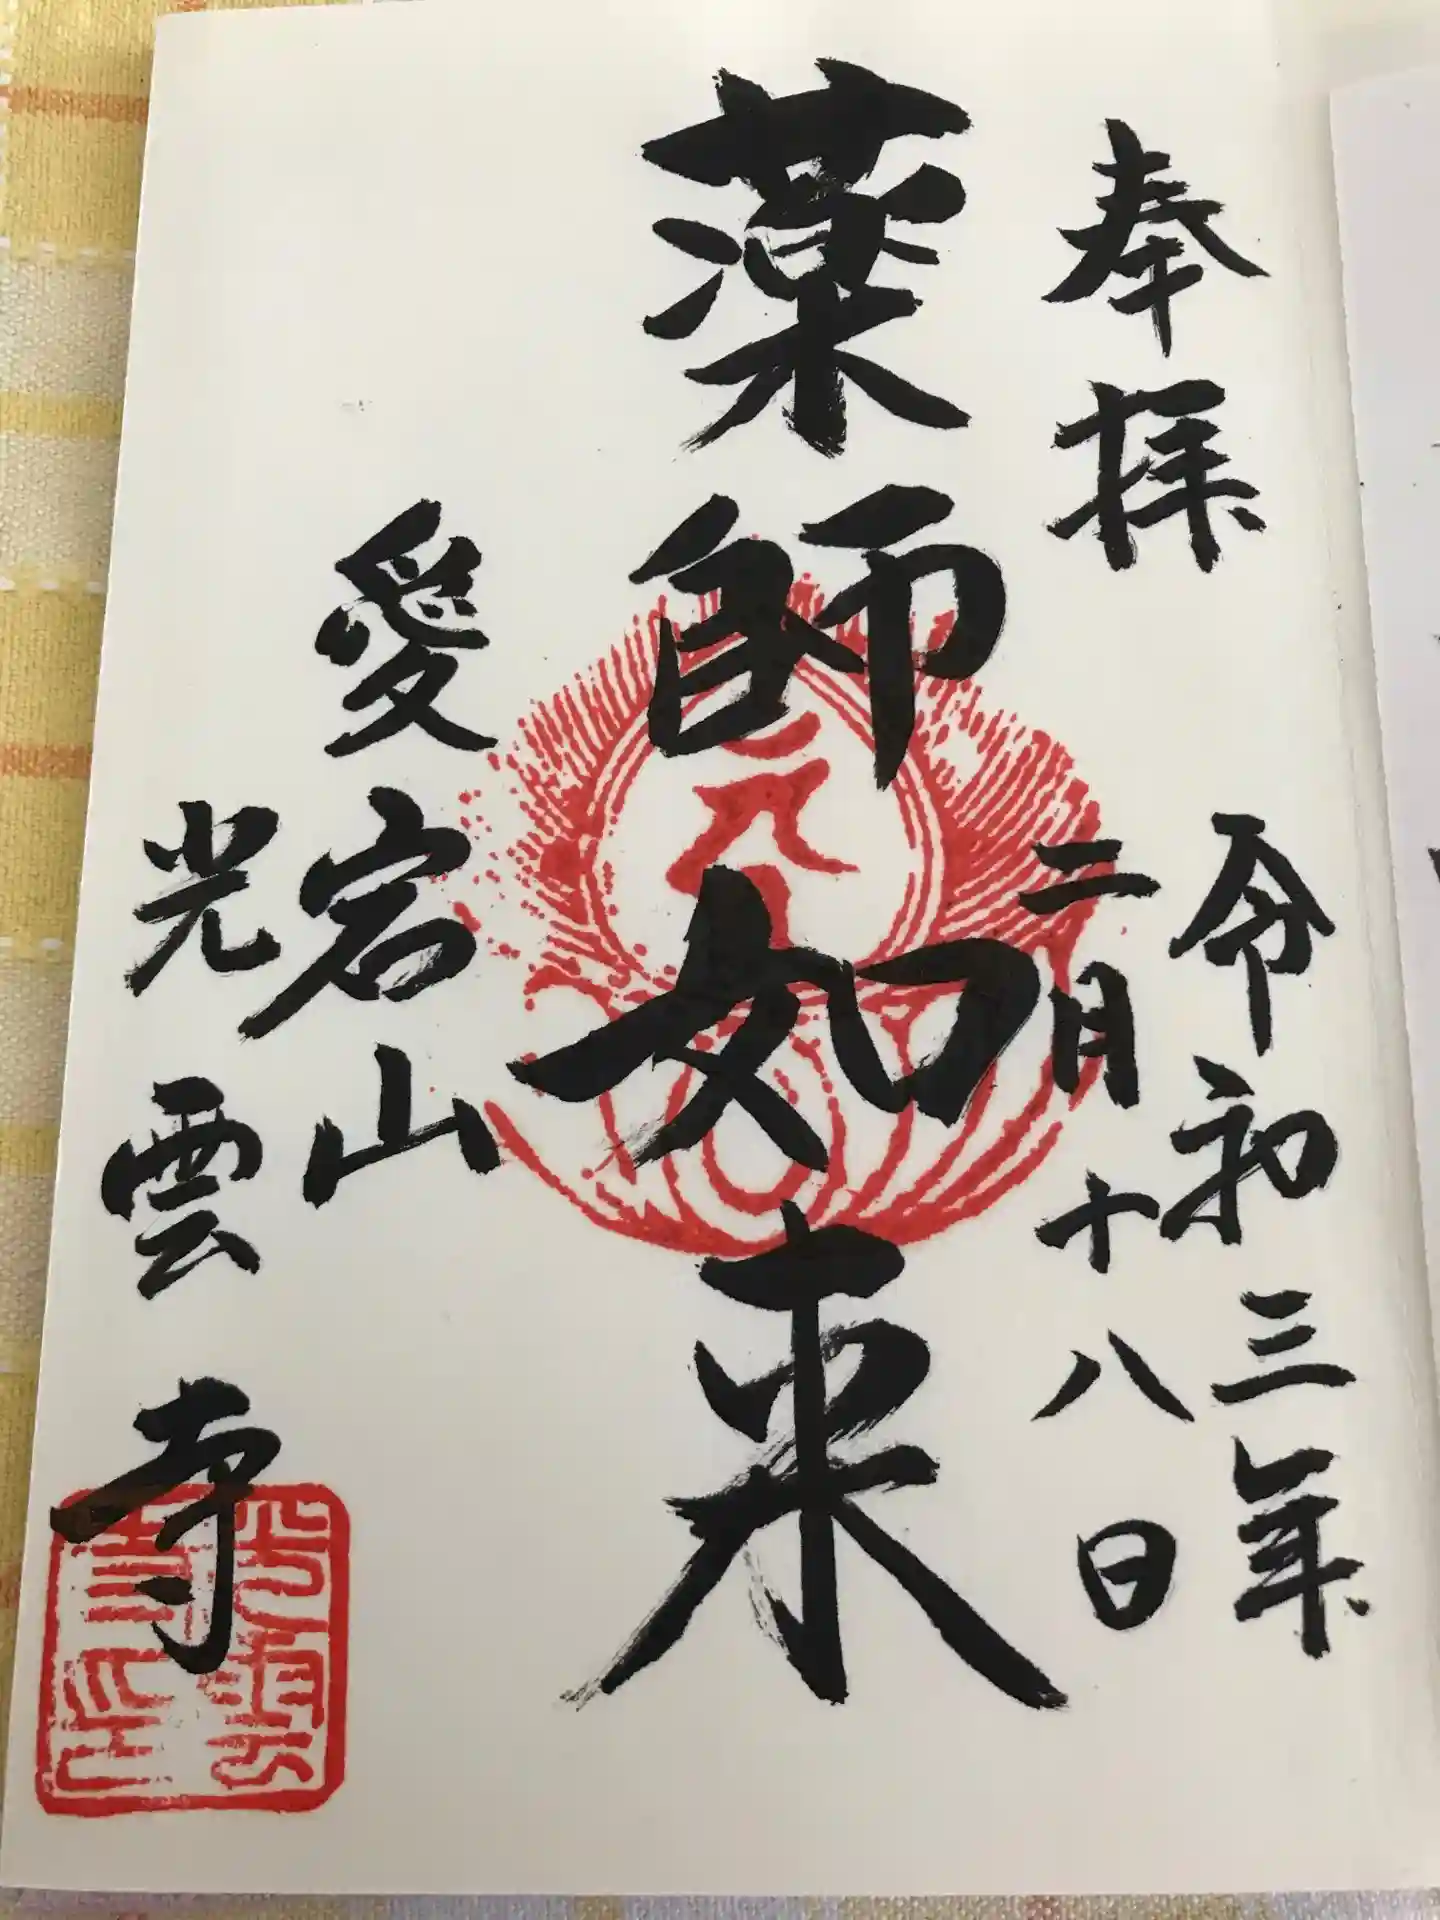 奉拝
令和三年
二月十八日
薬師如来
愛宕山
光雲寺
光雲
寺印